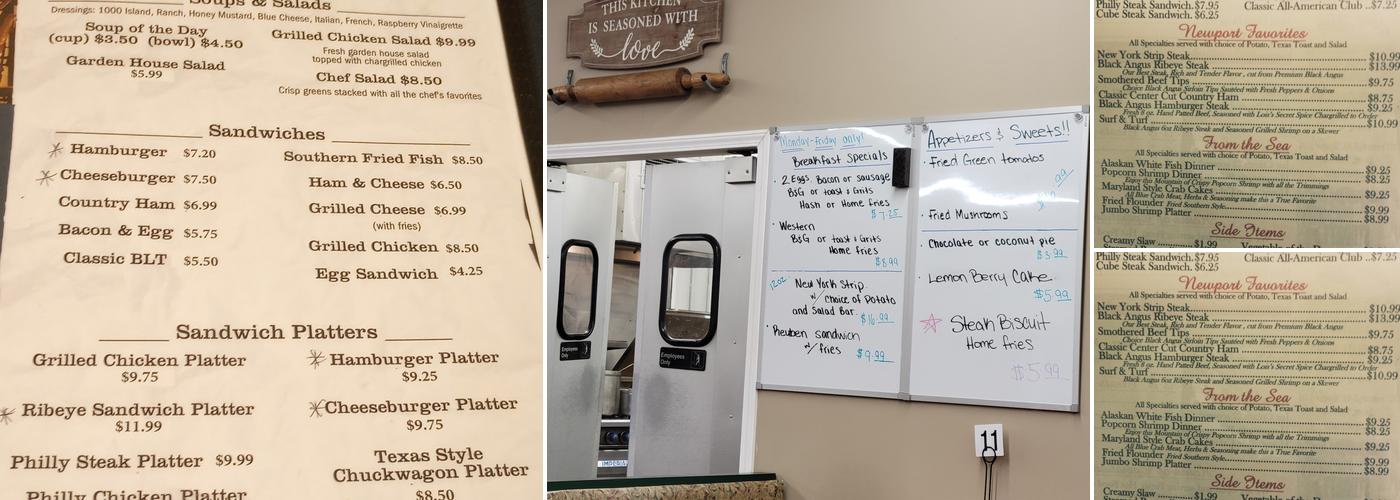 Soups & Salads
Dressings: 1000 Island, Ranch, Honey Mustard, Blue Cheese, Italian, French, Raspberry Vinaigrette
Soup of the Day
(cup) $3.50 (bowl) $4.50
Garden House Salad
$5.99
Grilled Chicken Salad $9.99
Fresh garden house salad
topped with chargrilled chicken
Chef Salad $8.50
Crisp greens stacked with all the chef's favorites
Sandwiches
Hamburger $7.20
Cheeseburger $7.50
Country Ham $6.99
Bacon & Egg $5.75
Classic BLT $5.50
Southern Fried Fish $8.50
Ham & Cheese $6.50
Grilled Cheese $6.99
(with fries)
Grilled Chicken $8.50
Egg Sandwich $4.25
Sandwich Platters
Grilled Chicken Platter
$9.75
Ribeye Sandwich Platter
$11.99
Philly Steak Platter $9.99
Philly Chicken Platter
Hamburger Platter
$9.25
Cheeseburger Platter
$9.75
Texas Style
Chuckwagon Platter
$8.50
THIS KITCHEN
IS SEASONED WITH
love
Monday-Friday only!
Breakfast Specials
2 Eggs Bacon or sausage
B&G or toast & Grits
Hash or Home fries
$7.25
Western
B&G or toast & Grits
Home fries
$8.99
12oz. New York Strip
w/ choice of Potato
and Salad Bar
$16.99
Reuben sandwich
w/ fries $9.99
Appetizers & Sweets!!
Fried Green tomatos
Fried Mushrooms
Chocolate or coconut pie
$3.99
Lemon Berry Cake
$5.99
Steak Biscuit
Home fries
$5.99
Employees
Only
Employees
Only
IMPERIAL
11
Philly Steak Sandwich. $7.95 Classic All-American Club ..$7.25
Cube Steak Sandwich. $6.25
Newport Favorites
All Specialties served with choice of Potato, Texas Toast and Salad
New York Strip Steak $10.99
Black Angus Ribeye Steak $13.99
Our Best Steak, Rich and Tender Flavor, cut from Premium Black Angus
Smothered Beef Tips $9.75
Choice Black Angus Sirloin Tips Sautéed with Fresh Peppers & Onions
Classic Center Cut Country Ham $8.75
Black Angus Hamburger Steak $9.25
Fresh 8 oz. Hand Patted Beef, Seasoned with Lois's Secret Spice Chargrilled to Order
Surf & Turf $10.99
Black Angus 6oz Ribeye Steak and Seasoned Grilled Shrimp on a Skewer
From the Sea
All Specialties served with choice of Potato, Texas Toast and Salad
Alaskan White Fish Dinner $9.25
Popcorn Shrimp Dinner $8.25
Enjoy this Mountain of Crispy Popcorn Shrimp with all the Trimmings
Maryland Style Crab Cakes $9.25
All Blue Crab Meat, Herbs & Seasoning make this a True Favorite
Fried Flounder Fried Southern Style $9.99
Jumbo Shrimp Platter $8.99
Side Items
Creamy Slaw $1.99 Vegetable of the
Philly Steak Sandwich. $7.95 Classic All-American Club ..$7.25
Cube Steak Sandwich. $6.25
Newport Favorites
All Specialties served with choice of Potato, Texas Toast and Salad
New York Strip Steak $10.99
Black Angus Ribeye Steak $13.99
Our Best Steak, Rich and Tender Flavor, cut from Premium Black Angus
Smothered Beef Tips $9.75
Choice Black Angus Sirloin Tips Sautéed with Fresh Peppers & Onions
Classic Center Cut Country Ham $8.75
Black Angus Hamburger Steak $9.25
Fresh 8 oz. Hand Patted Beef, Seasoned with Lois's Secret Spice Chargrilled to Order
Surf & Turf $10.99
Black Angus 6oz Ribeye Steak and Seasoned Grilled Shrimp on a Skewer
From the Sea
All Specialties served with choice of Potato, Texas Toast and Salad
Alaskan White Fish Dinner $9.25
Popcorn Shrimp Dinner $8.25
Enjoy this Mountain of Crispy Popcorn Shrimp with all the Trimmings
Maryland Style Crab Cakes $9.25
All Blue Crab Meat, Herbs & Seasoning make this a True Favorite
Fried Flounder Fried Southern Style $9.99
Jumbo Shrimp Platter $8.99
Side Items
Creamy Slaw $1.99 Vegetable of the